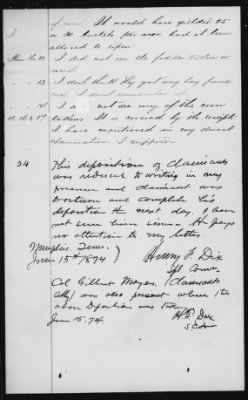 of corn. It would have yielded 25
or 30 bushels per acre had it been
allowed to ripen
I did not see the fodder taken or
used.
12 I dont think they got any hay from
me. I dont remember it.
14 I did not see any of the corn
taken. It is covered by the receipts
I have mentioned in my direct
examination I suppose.
24 This deposition of Claimants
was reduced to writing in my
presence and claimant was
to return and complete his
deposition the next day. I have
not seen him since. He pays
no attention to my letter.
Memphis Tenn.
June 15th 1874 )
Henry F. Dix
Spl Comr.
Col Gilbert Moyers, (Claimants
Atty) was also present when the
above Deposition was taken
June 15. 74.
H.F. Dix
S. Comr